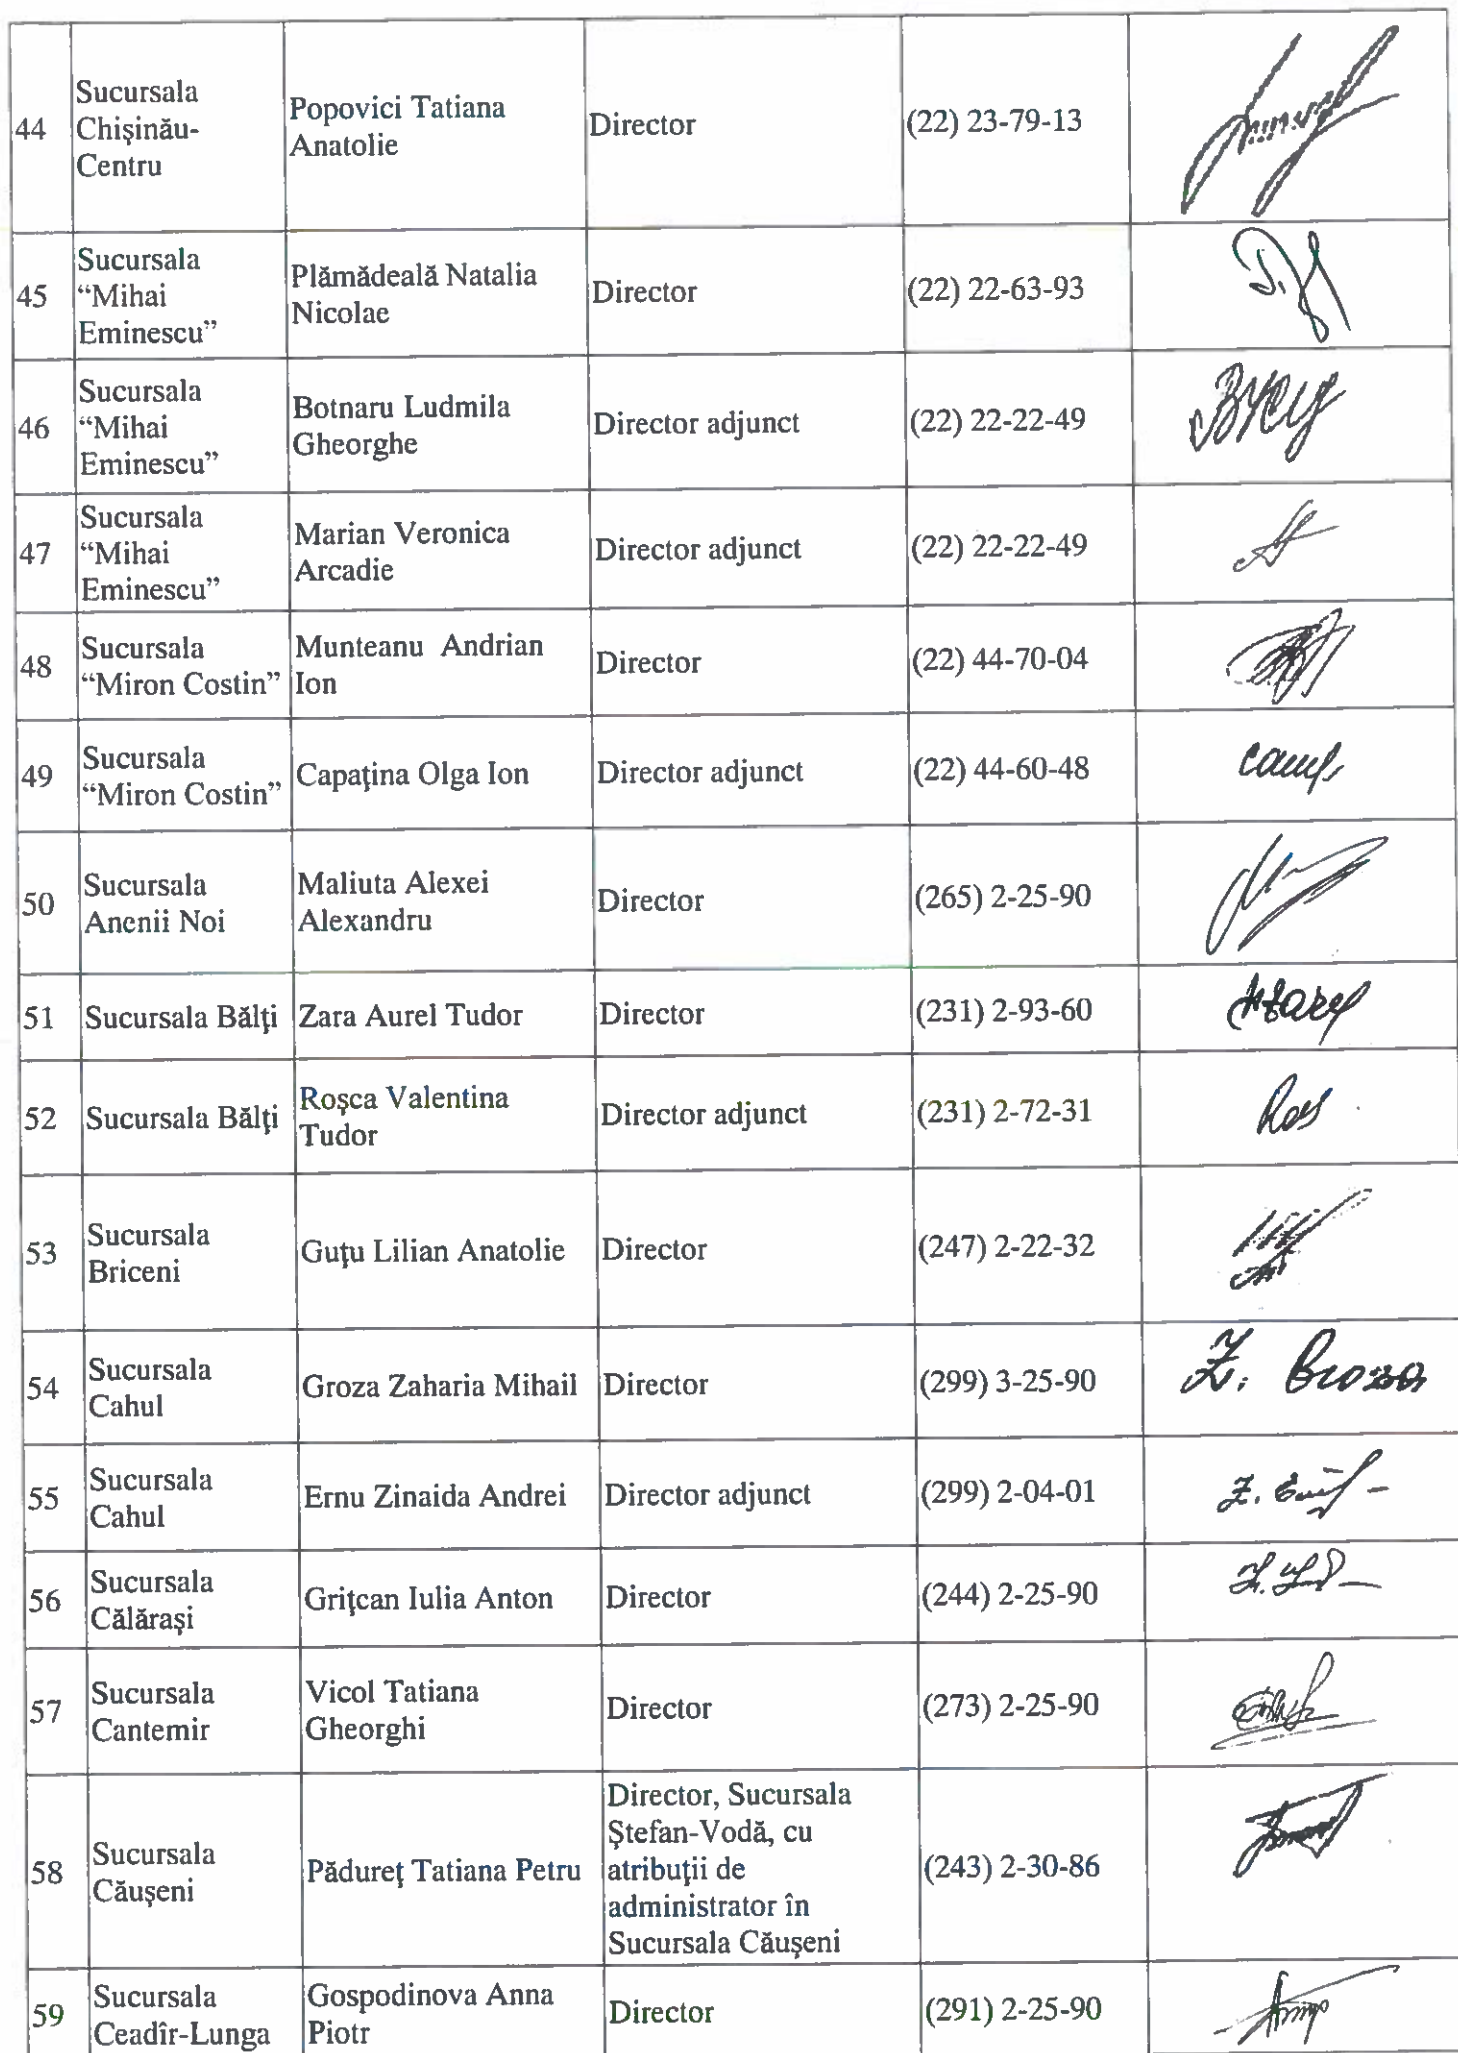 44
Sucursala
Chişinău-
Centru
Popovici Tatiana
Anatolie
Director
(22) 23-79-13
45
Sucursala
“Mihai
Eminescu”
Plămădeală Natalia
Nicolae
Director
(22) 22-63-93
46
Sucursala
“Mihai
Eminescu”
Botnaru Ludmila
Gheorghe
Director adjunct
(22) 22-22-49
47
Sucursala
“Mihai
Eminescu”
Marian Veronica
Arcadie
Director adjunct
(22) 22-22-49
48
Sucursala
“Miron Costin”
Munteanu Andrian
Ion
Director
(22) 44-70-04
49
Sucursala
“Miron Costin”
Capaţina Olga Ion
Director adjunct
(22) 44-60-48
50
Sucursala
Anenii Noi
Maliuta Alexei
Alexandru
Director
(265) 2-25-90
51
Sucursala Bălţi
Zara Aurel Tudor
Director
(231) 2-93-60
52
Sucursala Bălţi
Roşca Valentina
Tudor
Director adjunct
(231) 2-72-31
53
Sucursala
Briceni
Guţu Lilian Anatolie
Director
(247) 2-22-32
54
Sucursala
Cahul
Groza Zaharia Mihail
Director
(299) 3-25-90
55
Sucursala
Cahul
Ernu Zinaida Andrei
Director adjunct
(299) 2-04-01
56
Sucursala
Călăraşi
Griţcan Iulia Anton
Director
(244) 2-25-90
57
Sucursala
Cantemir
Vicol Tatiana
Gheorghi
Director
(273) 2-25-90
58
Sucursala
Căuşeni
Pădureţ Tatiana Petru
Director, Sucursala
Ştefan-Vodă, cu
atribuţii de
administrator în
Sucursala Căuşeni
(243) 2-30-86
59
Sucursala
Ceadîr-Lunga
Gospodinova Anna
Piotr
Director
(291) 2-25-90